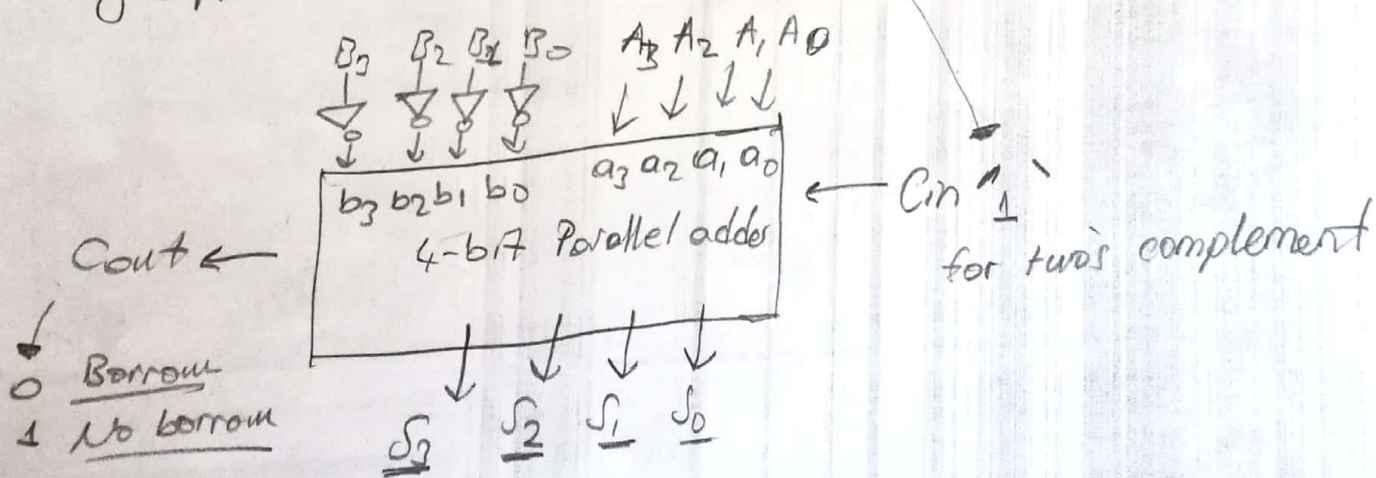 B3 B2 B1 B0 A3 A2 A1 A0
b3 b2 b1 b0 a3 a2 a1 a0
4-bit Parallel adder
Cin 1
for two's complement
Cout
0 Borrow
1 No borrow
S3 S2 S1 S0